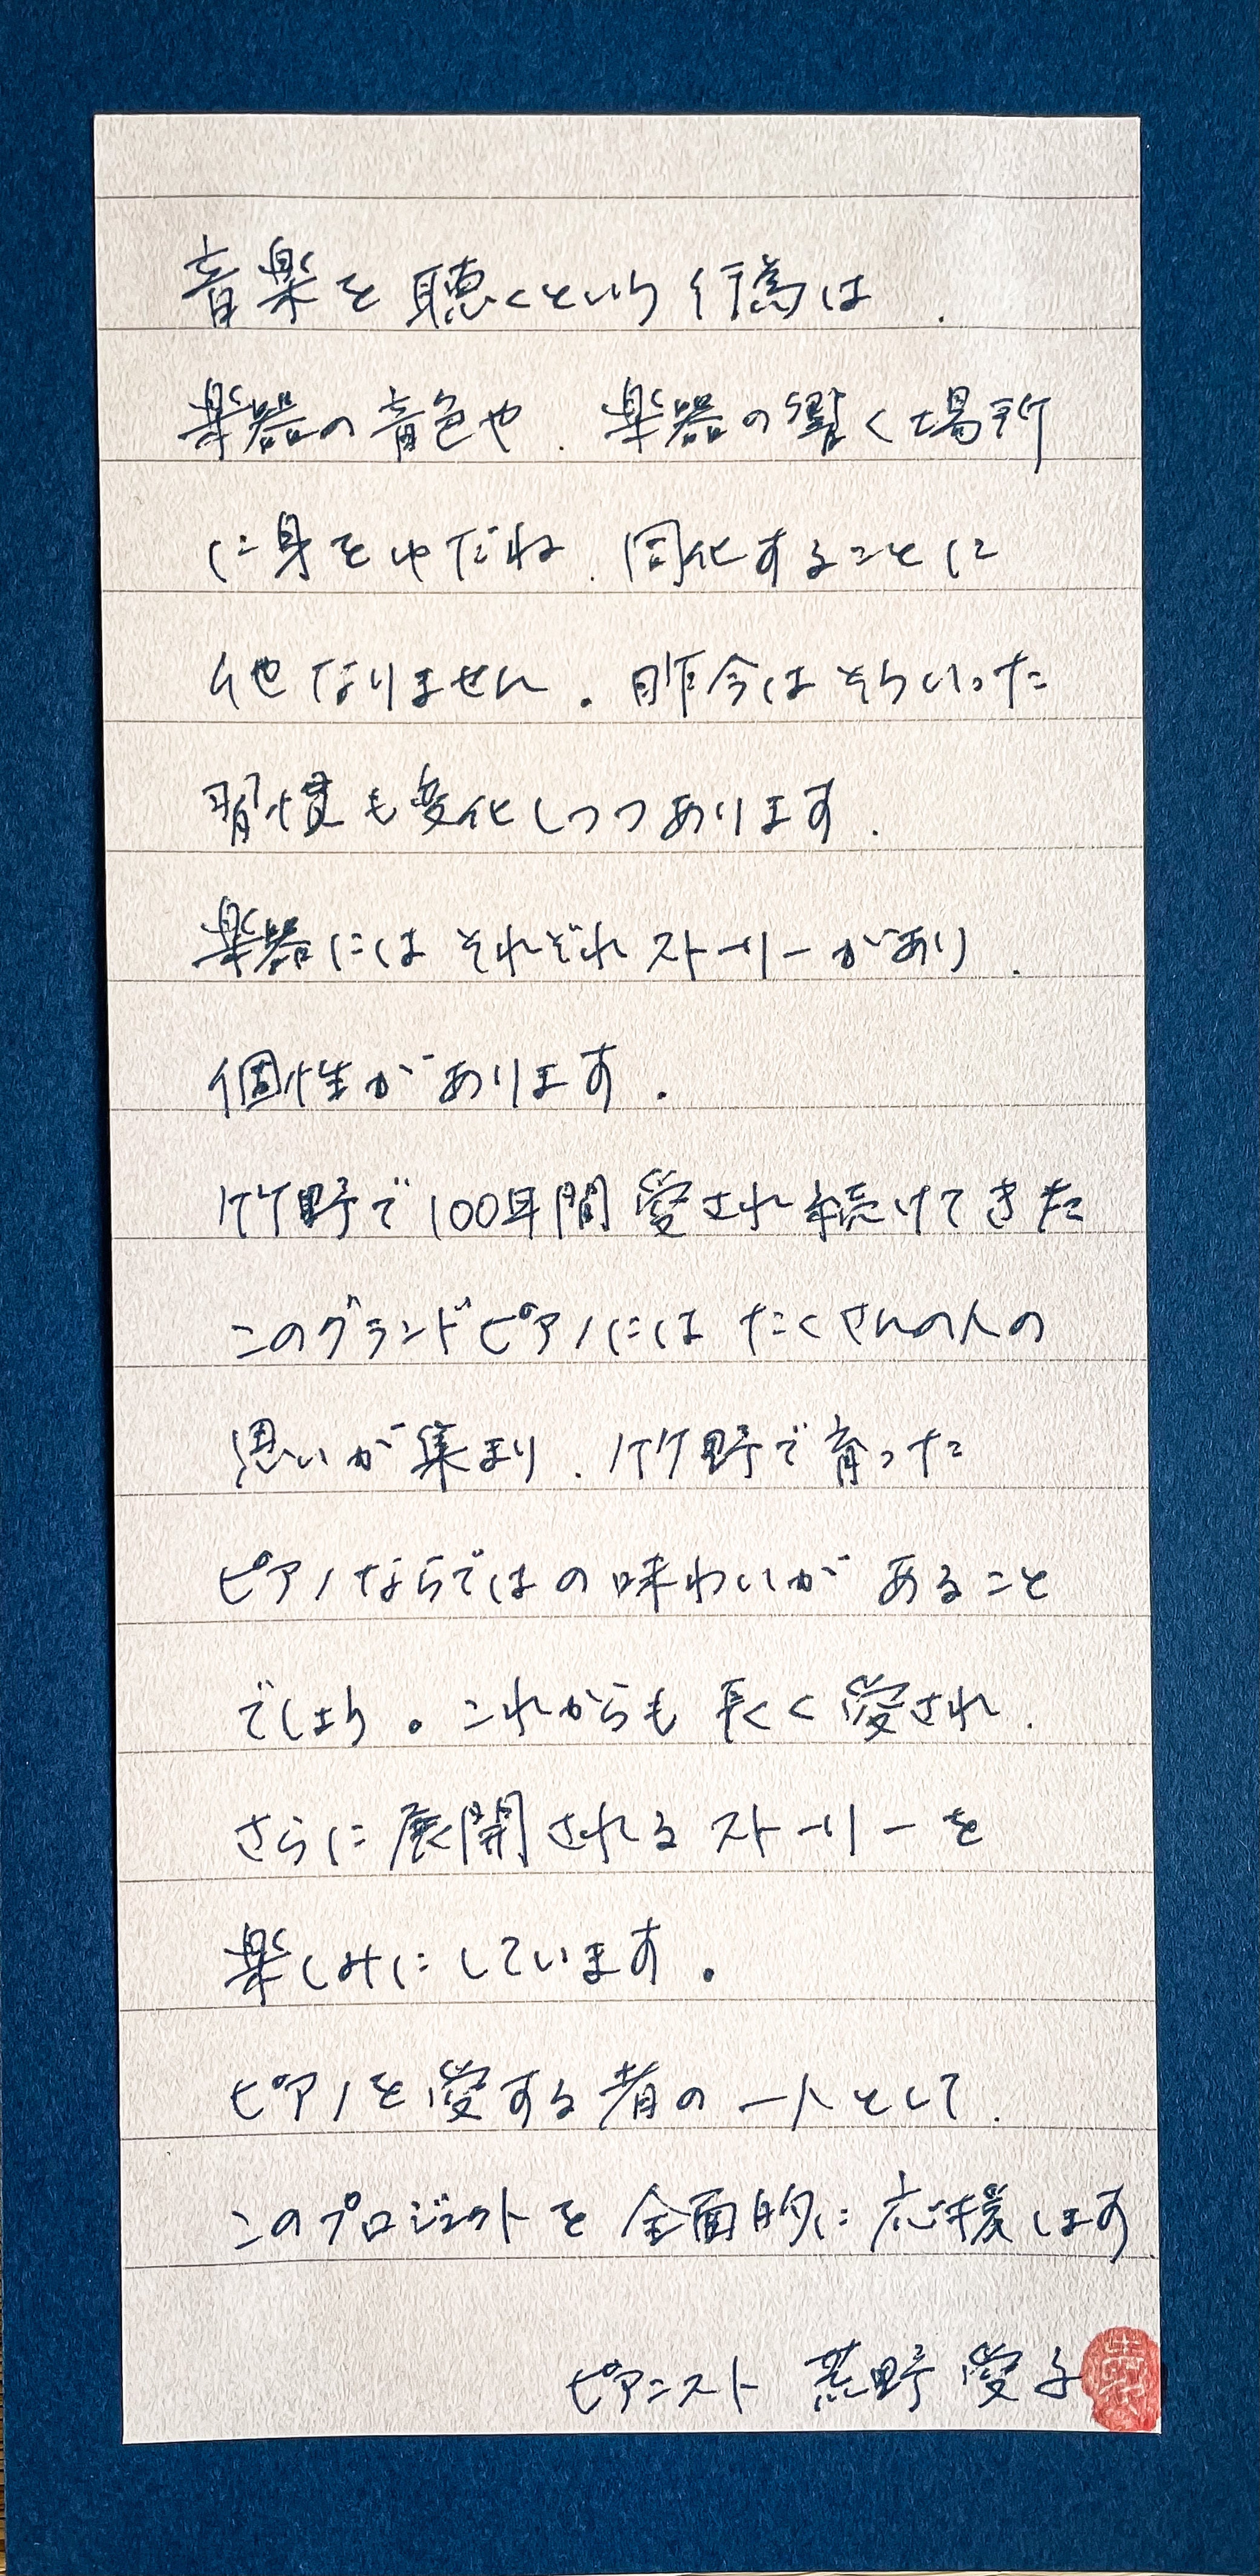 音楽を聴くという行為は、
楽器の音色や、楽器の響く場所
に身をゆだね、同化することに
他なりません。昨今はそういった
習慣も変化しつつあります。
楽器にはそれぞれストーリーがあり、
個性があります。
竹野で100年間愛され続けてきた
このグランドピアノにはたくさんの人の
思いが集まり、竹野で育った
ピアノならではの味わいがあること
でしょう。これからも長く愛され、
さらに展開されるストーリーを
楽しみにしています。
ピアノを愛する者の一人として、
このプロジェクトを全面的に応援します。
ピアニスト 荒野愛子